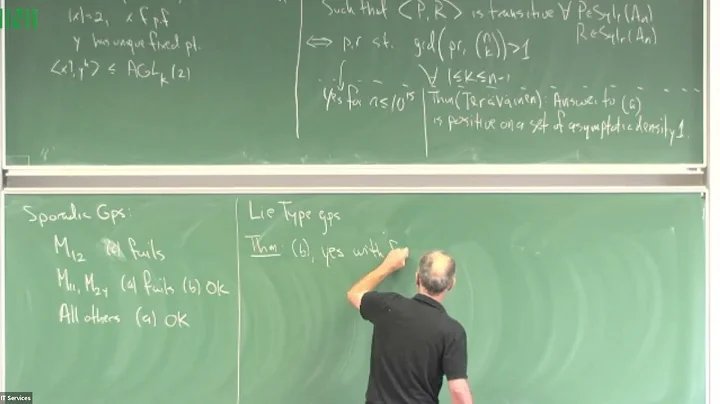 |x|=2, x f.p.f
y has unique fixed pt.
⟨x^g, y^h⟩ ≤ AGL_k(2)
Such that ⟨P,R⟩ is transitive ∀ P∈Syl_p(A_n)
R∈Syl_r(A_n)
⇔ p,r st. gcd(pr, (n k))>1
∀ 1≤k≤n-1
yes for n≤10^15
Thm(Teräväinen): Answer to (a)
is positive on a set of asymptotic density 1.
Sporadic Gps:
M_12 fails
M_11, M_24 (a) fails (b) OK
All others (a) OK
Lie Type gps
Thm: (b), yes with
IT Services